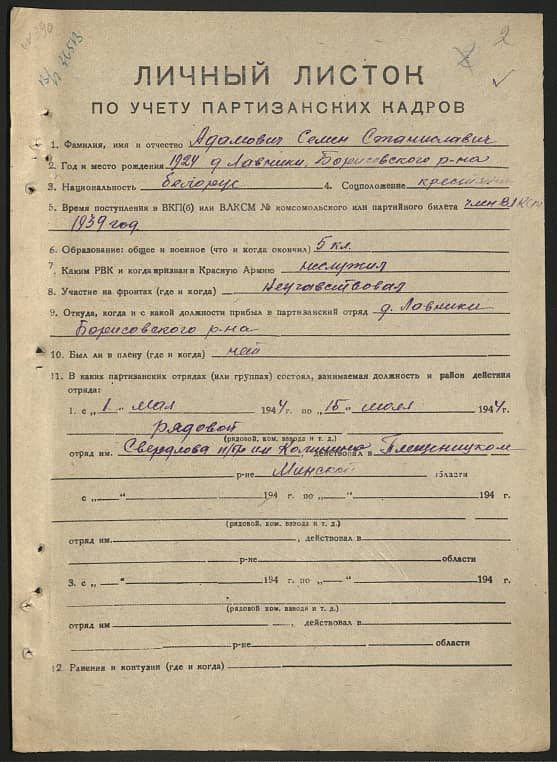 2
ЛИЧНЫЙ ЛИСТОК
ПО УЧЕТУ ПАРТИЗАНСКИХ КАДРОВ
1. Фамилия, имя и отчество Адамович Семен Станиславич
2. Год и место рождения 1924 д Лавники, Борисовского р-на
3. Национальность белорус 4. Соцположение крестьянин
5. Время поступления в ВКП(б) или ВЛКСМ № комсомольского или партийного билета член ВЛКСМ
1939 год
6. Образование: общее и военное (что и когда окончил) 5 кл.
7. Каким РВК и когда призван в Красную Армию неслужил
8. Участие на фронтах (где и когда) Неучавствовал
9. Откуда, когда и с какой должности прибыл в партизанский отряд д. Лавники
Борисовского р-на
10. Был ли в плену (где и когда) нет
11. В каких партизанских отрядах (или группах) состоял, занимаемая должность и район действия
отряда:
1. с „1“ мая 1944 г. по „15“ июля 1944 г.
рядовой
(рядовой, ком. взвода и т. д.)
отряд им. Свердлова п/бр им Калинина, действовал в Плещеницком
р-не Минской области
с „ “ 194 г. по „ “ 194 г.
(рядовой, ком. взвода и т. д.)
отряд им. , действовал в
р-не области
3. с „ “ 194 г. по „ “ 194 г.
(рядовой, ком. взвода и т. д.)
отряд им , действовал в
р-не области
12. Ранения и контузии (где и когда)